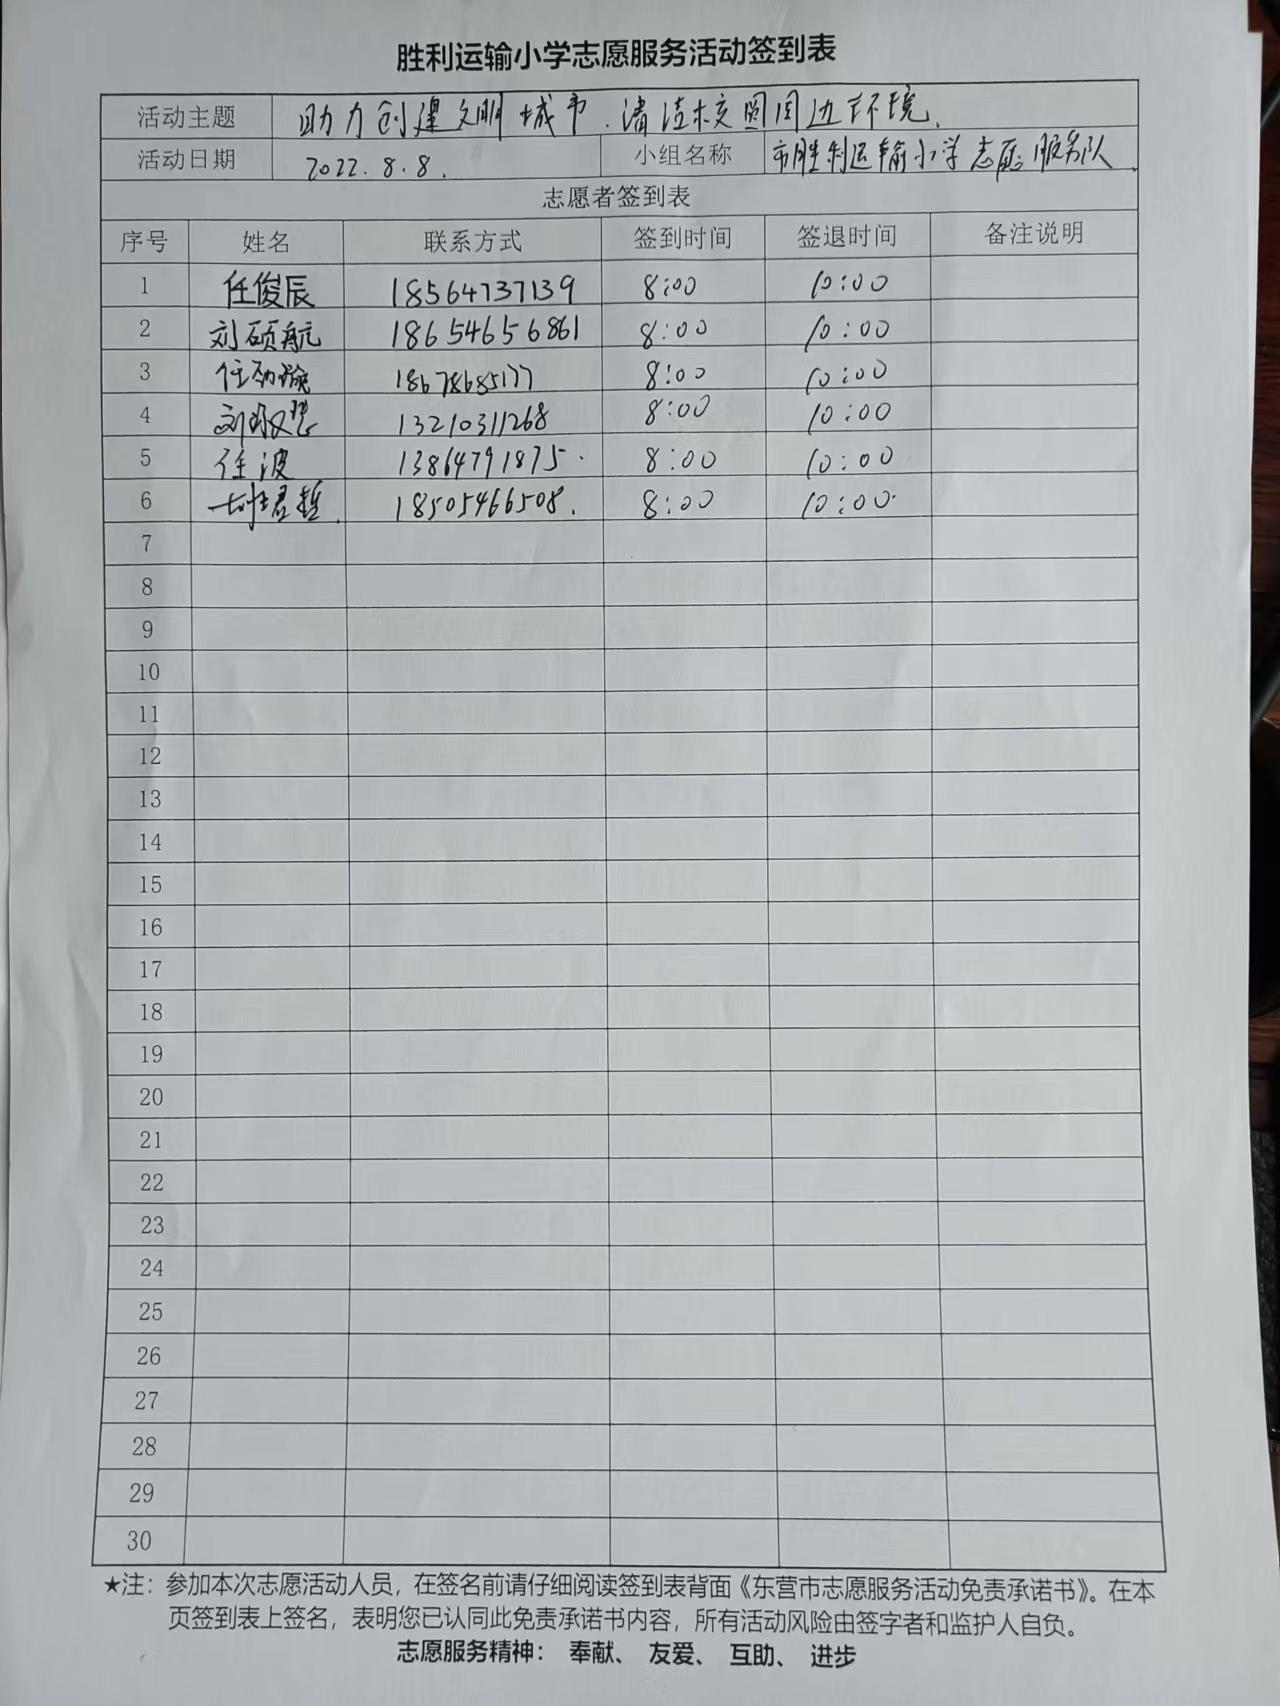 胜利运输小学志愿服务活动签到表
活动主题 助力创建文明城市.清洁校园周边环境.
活动日期 2022.8.8. 小组名称 市胜利运输小学志愿服务队.
志愿者签到表
序号 姓名 联系方式 签到时间 签退时间 备注说明
1 任俊辰 18564737139 8:00 10:00
2 刘硕航 18654656861 8:00 10:00
3 18678685177 8:00 10:00
4 13210311268 8:00 10:00
5 任波 13864791875. 8:00 10:00
6 18505466508. 8:00 10:00.
7
8
9
10
11
12
13
14
15
16
17
18
19
20
21
22
23
24
25
26
27
28
29
30
★注：参加本次志愿活动人员，在签名前请仔细阅读签到表背面《东营市志愿服务活动免责承诺书》。在本
页签到表上签名，表明您已认同此免责承诺书内容，所有活动风险由签字者和监护人自负。
志愿服务精神： 奉献、 友爱、 互助、 进步